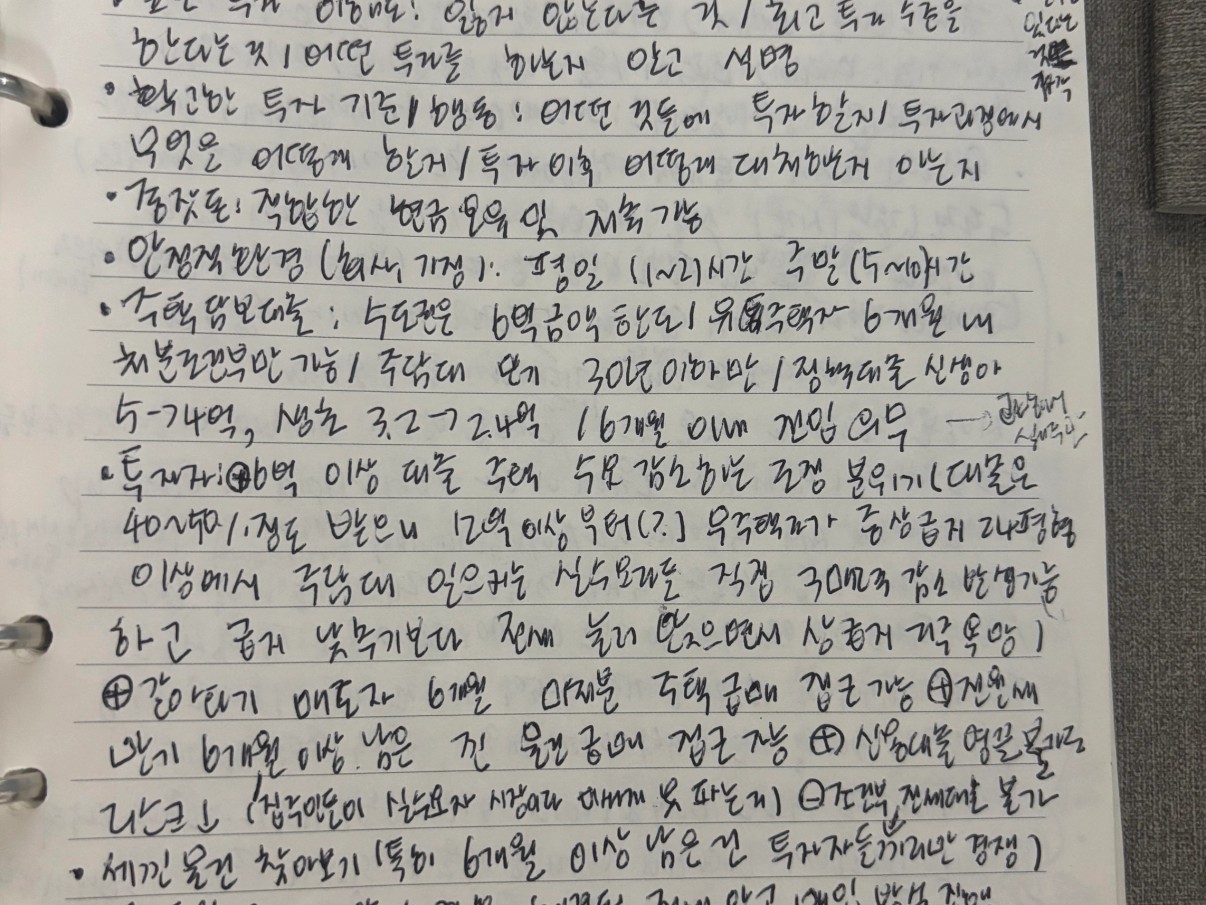 잃지 않는다는 것 / 최고 투자 수준을
한다는 것 / 어떤 투자를 하는지 알고 설명
• 확고한 투자 기준 / 행동 : 어떤 것들에 투자할지 / 투자과정에서
무엇을 어떻게 할지 / 투자 이후 어떻게 대처하는지 아는지
• 종잣돈 : 적합한 현금 보유 및 저축 가능
• 안정적 환경 (회사, 가정) : 평일 (1~2)시간 주말 (5~)시간
• 주택담보대출 : 수도권은 6억 금액 한도 / 유주택자 6개월 내
처분조건부만 가능 / 주담대 만기 30년 이하만 / 정책대출 신생아
5→4억, 생초 3.2→2.4억 / 6개월 이내 전입 의무 →
• 투자자 : ⊕6억 이상 대출 주택 수요 감소하는 조정 분위기 (대출은
40~50% 정도 받으니 12억 이상부터(?) 무주택자가 중상급지 24평형
이상에서 주담대 일으키는 실수요자들 직접 감소 발생가능
하고 급지 낮추기보다 전세 눌러 앉으면서 상급지 거주 욕망)
⊕갈아타기 매도자 6개월 미처분 주택 급매 접근 가능 ⊕전월세
만기 6개월 이상 남은 낀 물건 급매 접근 가능 ⊕신용대출 영끌 불가로
리스크↓ (집주인들이 실수요자 시장이라 못 파는지) ⊖조건부 전세대출 불가
• 세낀 물건 찾아보기 (특히 6개월 이상 남은 건 투자자들끼리만 경쟁)